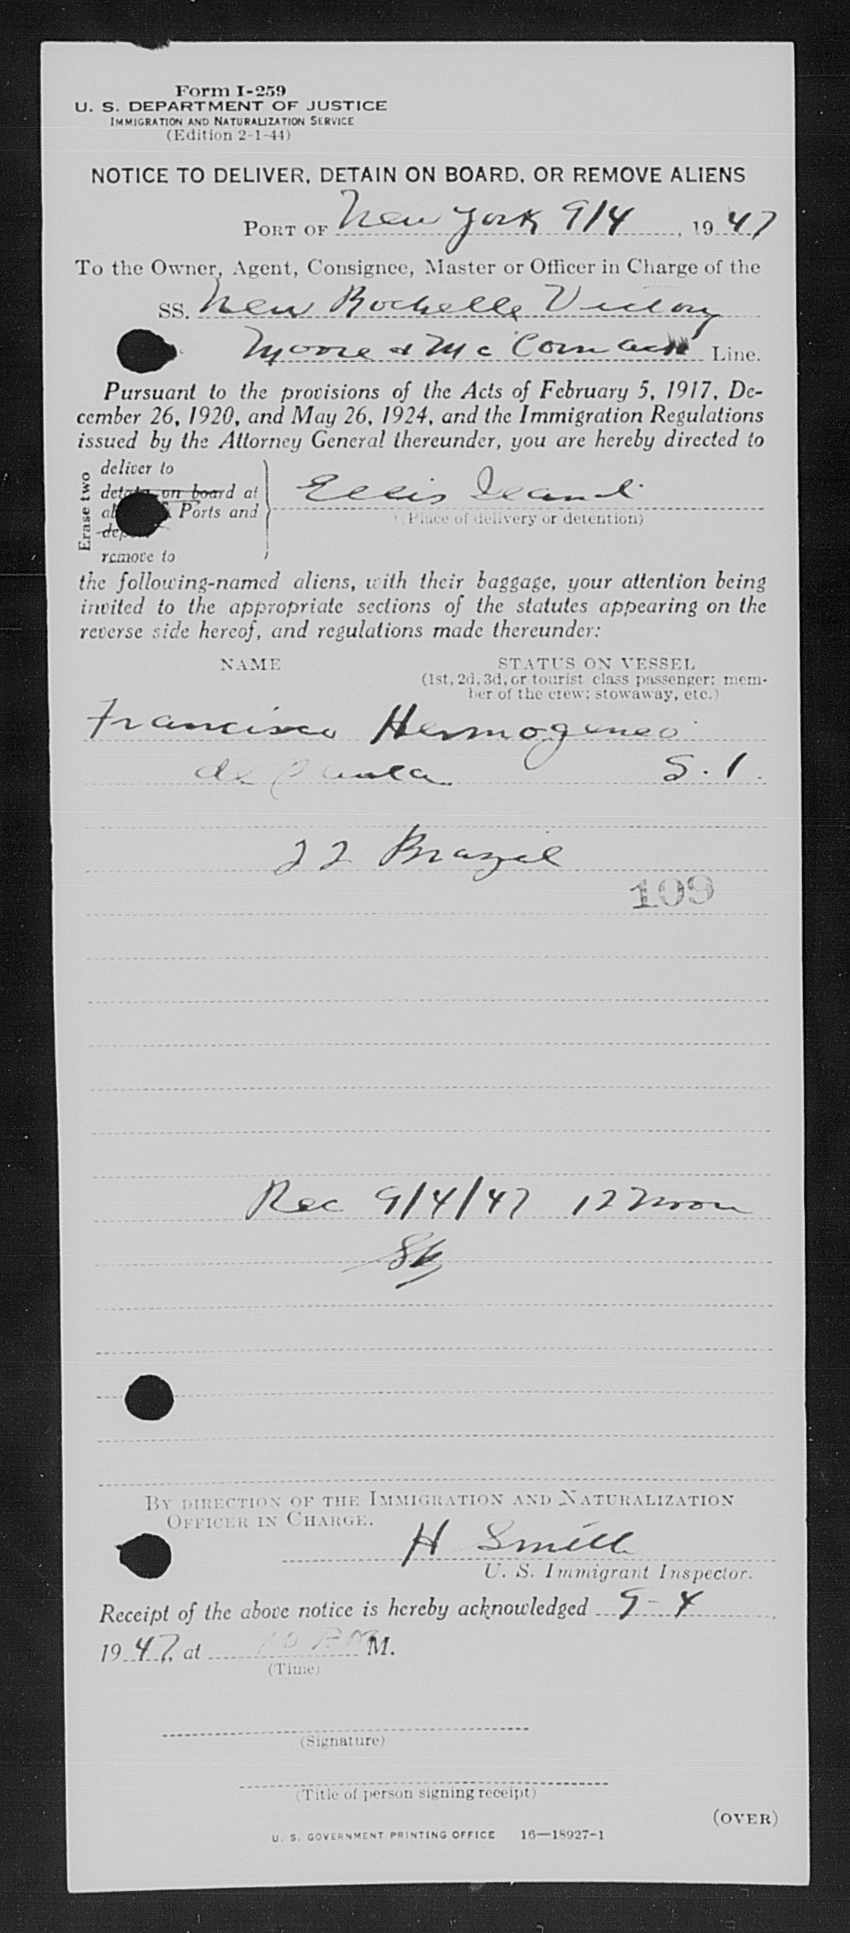 Form I-259
U. S. DEPARTMENT OF JUSTICE
IMMIGRATION AND NATURALIZATION SERVICE
(Edition 2-1-44)
NOTICE TO DELIVER, DETAIN ON BOARD, OR REMOVE ALIENS
PORT OF New York 9/4, 1947
To the Owner, Agent, Consignee, Master or Officer in Charge of the
SS. New Rochelle Victory
Moore & McCormack Line.
Pursuant to the provisions of the Acts of February 5, 1917, De-
cember 26, 1920, and May 26, 1924, and the Immigration Regulations
issued by the Attorney General thereunder, you are hereby directed to
Erase two
deliver to
detain on board at
Ports and
remove to
Ellis Island
(Place of delivery or detention)
the following-named aliens, with their baggage, your attention being
invited to the appropriate sections of the statutes appearing on the
reverse side hereof, and regulations made thereunder:
NAME STATUS ON VESSEL
(1st, 2d, 3d, or tourist class passenger; mem-
ber of the crew; stowaway, etc.)
Francisco Hermogenes
de Paula S. 1.
22 Brazil
109
Rec 9/4/47 12 Noon
BY DIRECTION OF THE IMMIGRATION AND NATURALIZATION
OFFICER IN CHARGE.
H Smith
U. S. Immigrant Inspector.
Receipt of the above notice is hereby acknowledged 9-4
1947, at 10 M.
(Time)
(Signature)
(Title of person signing receipt)
(OVER)
U. S. GOVERNMENT PRINTING OFFICE 16—18927-1